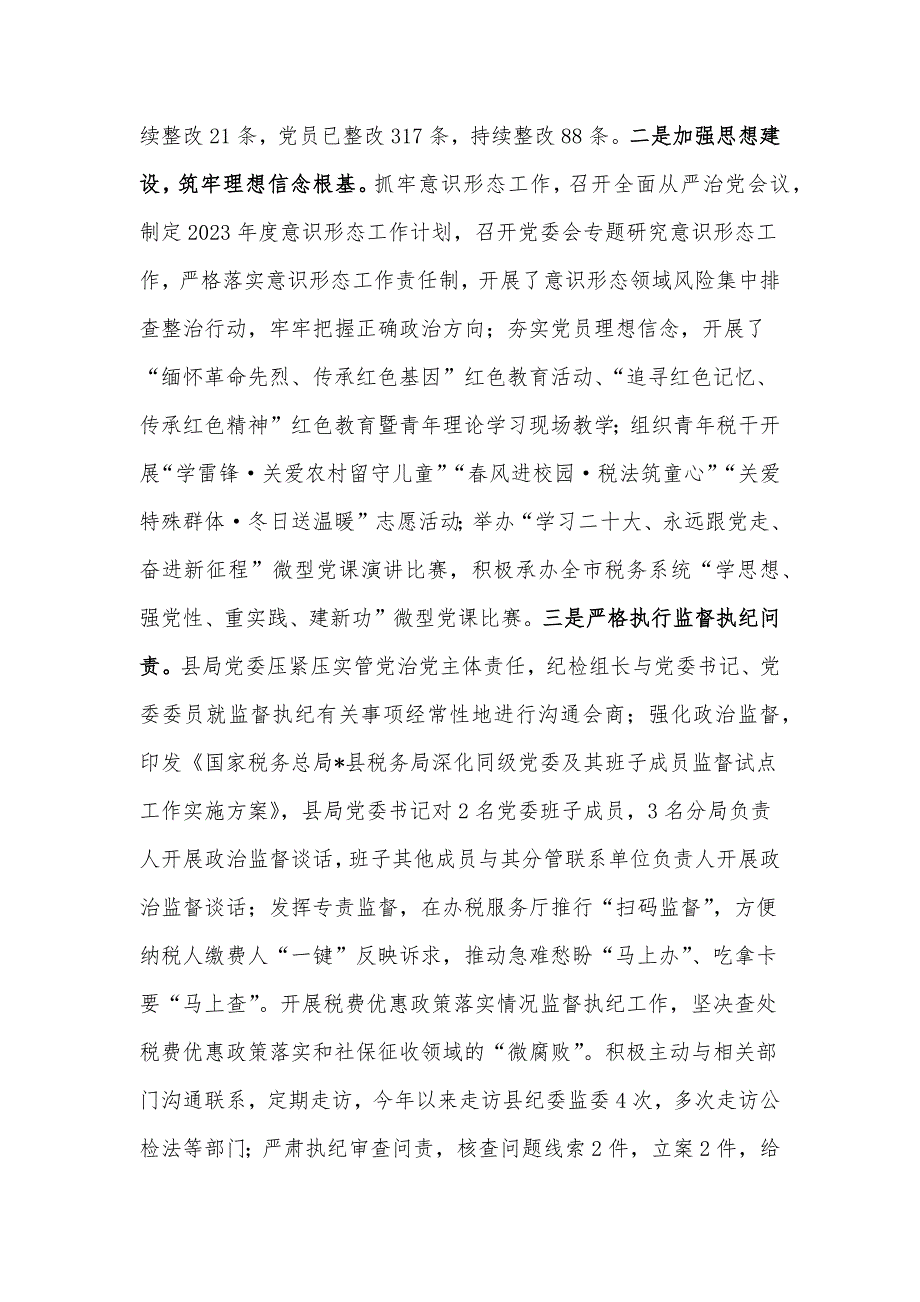 续整改 21 条，党员已整改 317 条，持续整改 88 条。二是加强思想建
设，筑牢理想信念根基。抓牢意识形态工作，召开全面从严治党会议，
制定 2023 年度意识形态工作计划，召开党委会专题研究意识形态工
作，严格落实意识形态工作责任制，开展了意识形态领域风险集中排
查整治行动，牢牢把握正确政治方向；夯实党员理想信念，开展了
“缅怀革命先烈、传承红色基因”红色教育活动、“追寻红色记忆、
传承红色精神”红色教育暨青年理论学习现场教学；组织青年税干开
展“学雷锋·关爱农村留守儿童”“春风进校园·税法筑童心”“关爱
特殊群体·冬日送温暖”志愿活动；举办“学习二十大、永远跟党走、
奋进新征程”微型党课演讲比赛，积极承办全市税务系统“学思想、
强党性、重实践、建新功”微型党课比赛。三是严格执行监督执纪问
责。县局党委压紧压实管党治党主体责任，纪检组长与党委书记、党
委委员就监督执纪有关事项经常性地进行沟通会商；强化政治监督，
印发《国家税务总局*县税务局深化同级党委及其班子成员监督试点
工作实施方案》，县局党委书记对 2 名党委班子成员，3 名分局负责
人开展政治监督谈话，班子其他成员与其分管联系单位负责人开展政
治监督谈话；发挥专责监督，在办税服务厅推行“扫码监督”，方便
纳税人缴费人“一键”反映诉求，推动急难愁盼“马上办”、吃拿卡
要“马上查”。开展税费优惠政策落实情况监督执纪工作，坚决查处
税费优惠政策落实和社保征收领域的“微腐败”。积极主动与相关部
门沟通联系，定期走访，今年以来走访县纪委监委 4 次，多次走访公
检法等部门；严肃执纪审查问责，核查问题线索 2 件，立案 2 件，给